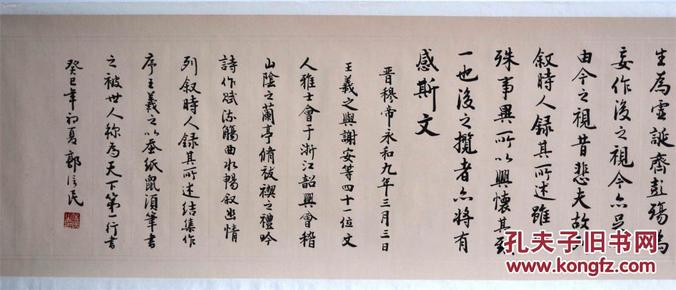 生為虛誕齊彭殤為
妄作後之視今亦
由今之視昔悲夫故
叙時人錄其所述雖
殊事異所以興懷其致
一也後之攬者亦將有
感斯文
晉穆帝永和九年三月三日
王羲之與謝安等四十一位文
人雅士會于浙江韶興會稽
山陰之蘭亭脩祓禊之禮吟
詩作賦流觴曲水暢叙幽情
列叙時人錄其所述結集作
序王羲之以蚕紙鼠須筆書
之被世人称為天下第一行書
癸巳年初夏郭信民
孔夫子旧书网
www.kongfz.com